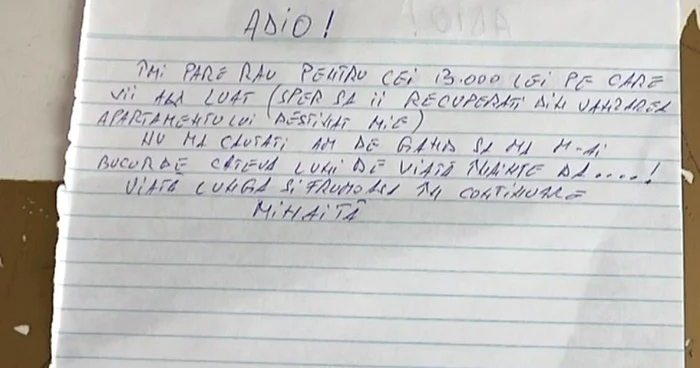 ADIO!
IMI PARE RAU PENTRU CEI 13.000 LEI PE CARE
VII AM LUAT (SPER SA II RECUPERATI DIN VANZAREA
APARTAMENTULUI DESTINAT MIE)
NU MA CAUTATI AM DE GAND SA MA M-AI
BUCUR DE CATEVA LUNI DE VIATĂ ÎNAINTE DA.....!
VIATĂ LUNGA SI FRUMOASA ÎN CONTINUARE
MIHAITĂ